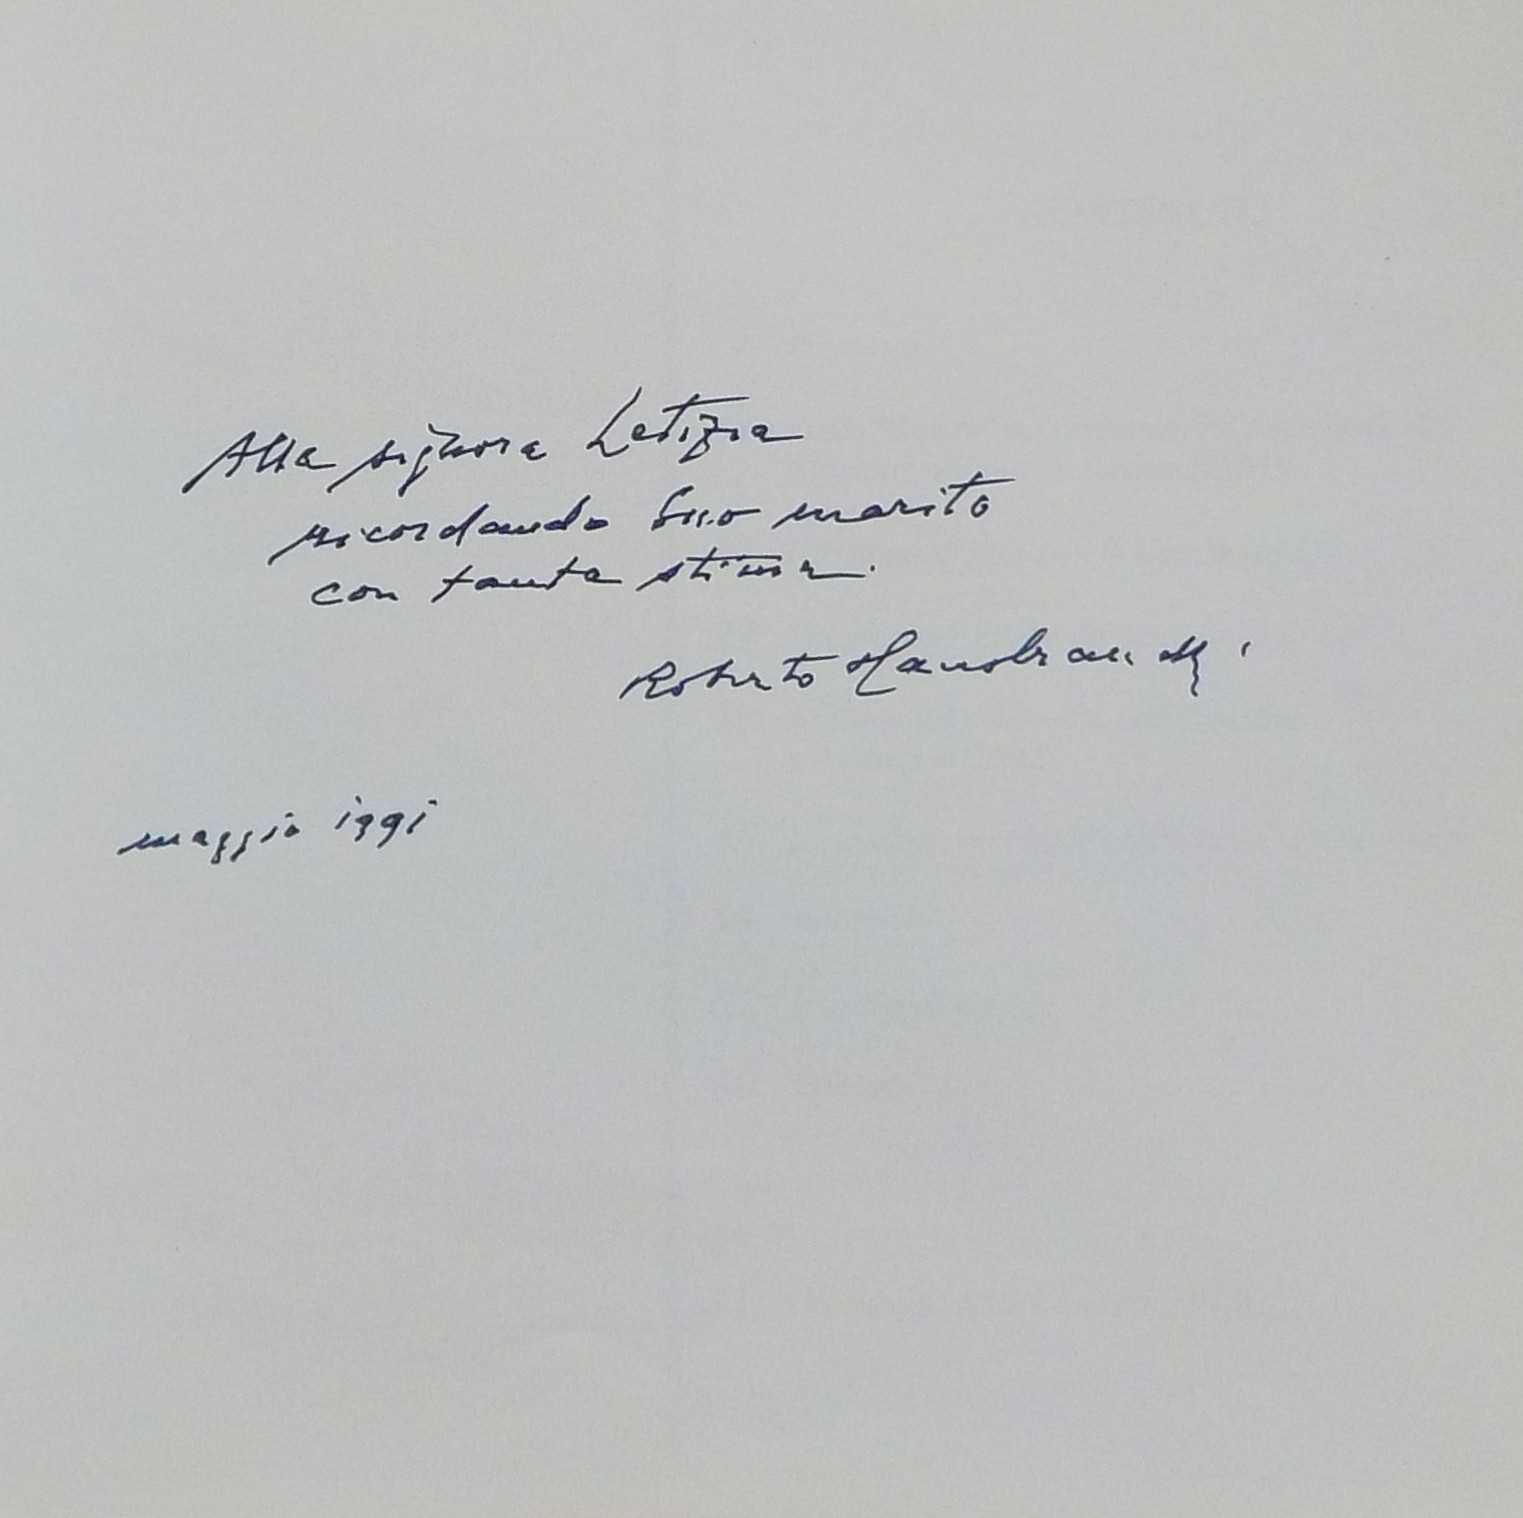 Alla signora Letizia
ricordando Suo marito
con tanta stima.
Roberto
maggio 1991